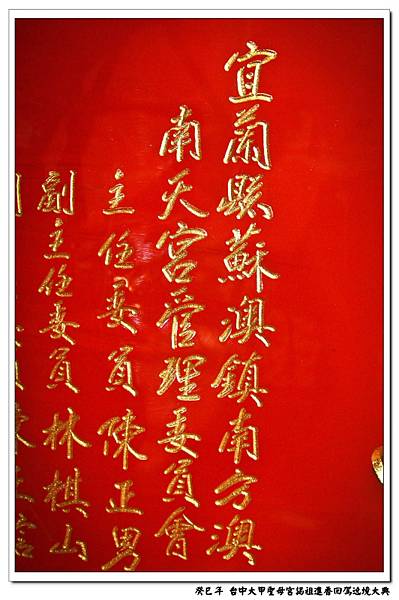 宜蘭縣蘇澳鎮南方澳
南天宮管理委員會
主任委員陳正男
副主任委員林棋山
癸巳年 台中大甲聖母宮謁祖進香回駕遶境大典